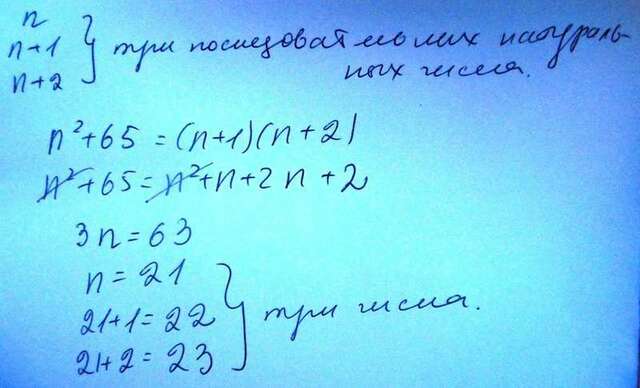 n
n+1
n+2
три последовательных натураль-
ных числа.
n²+65=(n+1)(n+2)
n²+65=n²+n+2n+2
3n=63
n=21
21+1=22
21+2=23
три числа.